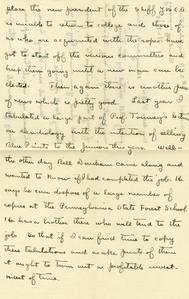 place the new president of the Sheff. Y.M.C.A.
is unable to return to college and those of
us who are acquainted with the ropes have
got to start off the various committees and
help them going until a new man can be
elected. Then again there is another piece
of news which is pretty good. Last year I
tabulated a large part of Prof. Toumey's notes
on dendrology with the intention of selling
blue Prints to the Juniors this year. Well—
the other day Bill Dunham came along and
wanted to know if I had completed the job. He
says he can dispose of a large number of
copies at the Pennsylvania State Forest School.
He has a brother there who will tend to the
job. So that if I can find time to copy
these tabulations and make prints of them
it ought to turn out a profitable invest-
ment of time.